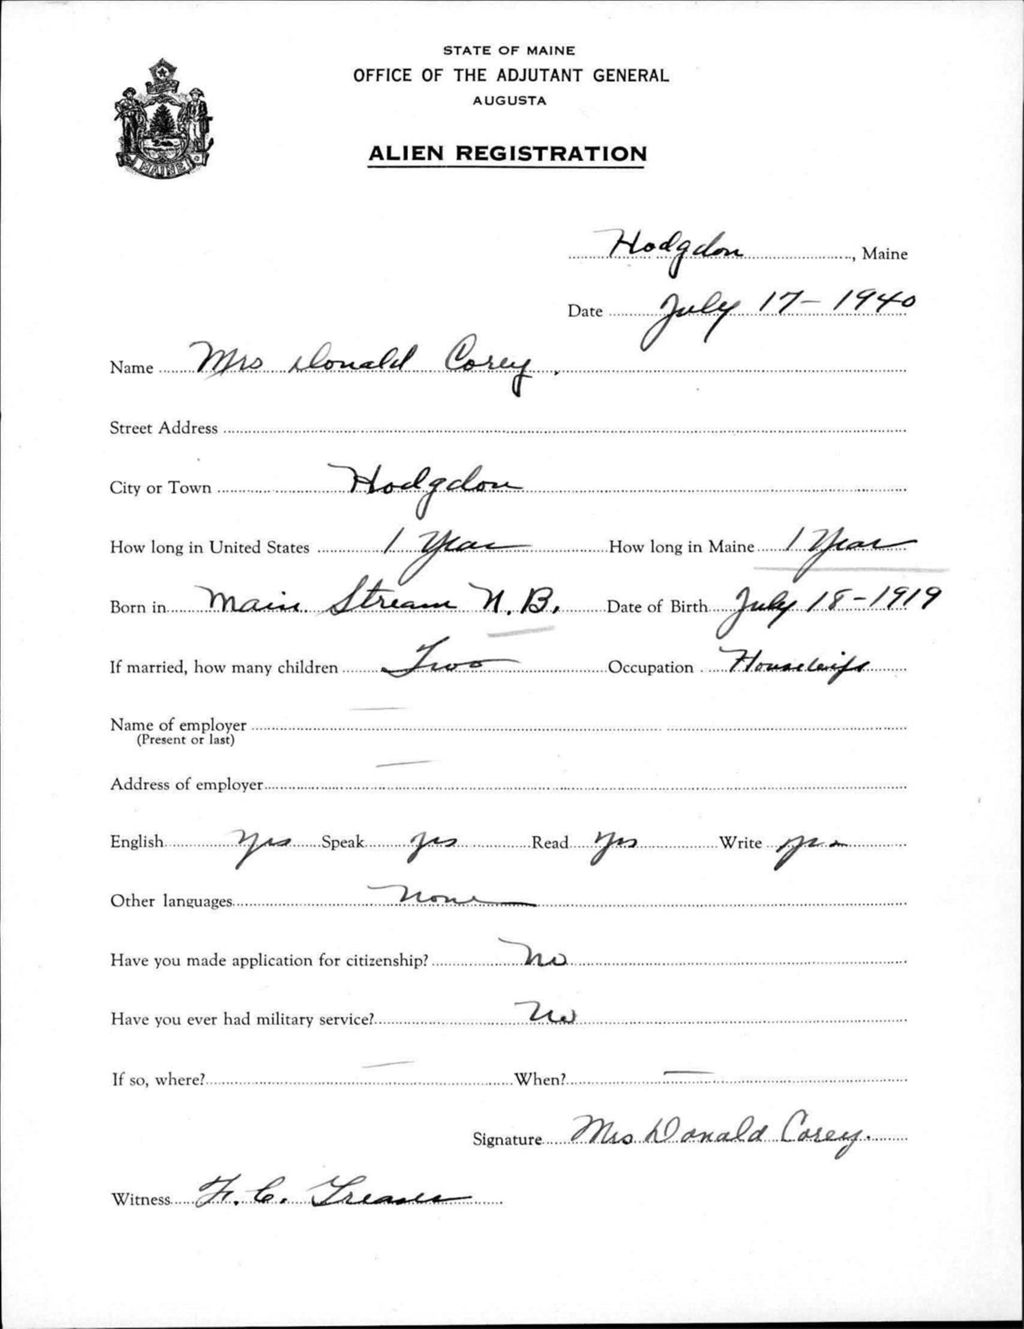 STATE OF MAINE
OFFICE OF THE ADJUTANT GENERAL
AUGUSTA
ALIEN REGISTRATION
MAINE
Hodgdon, Maine
Date July 17 - 1940
Name Mrs Donald Corey.
Street Address
City or Town Hodgdon
How long in United States 1 Year How long in Maine 1 Year
Born in Main Stream N.B. Date of Birth July 18 - 1919
If married, how many children Two Occupation Housewife
Name of employer
(Present or last)
Address of employer
English Yes Speak yes Read Yes Write yes
Other languages None
Have you made application for citizenship? No
Have you ever had military service? No
If so, where? — When? —
Signature Mrs Donald Corey.
Witness F. C.